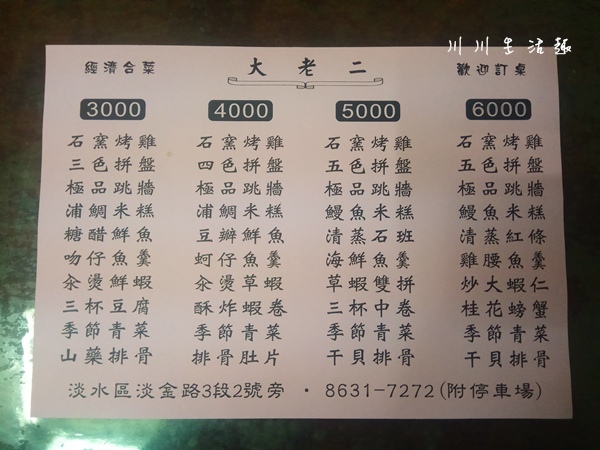 川川生活趣
經濟合菜 大老二 歡迎訂桌
3000 4000 5000 6000
石窯烤雞 石窯烤雞 石窯烤雞 石窯烤雞
三色拼盤 四色拼盤 五色拼盤 五色拼盤
極品跳牆 極品跳牆 極品跳牆 極品跳牆
浦鯛米糕 浦鯛米糕 鰻魚米糕 鰻魚米糕
糖醋鮮魚 豆瓣鮮魚 清蒸石班 清蒸紅條
吻仔魚羹 蚵仔魚羹 海鮮魚羹 雞腰魚羹
汆燙鮮蝦 汆燙草蝦 草蝦雙拼 炒大蝦仁
三杯豆腐 酥炸蝦卷 三杯中卷 桂花螃蟹
季節青菜 季節青菜 季節青菜 季節青菜
山藥排骨 排骨肚片 干貝排骨 干貝排骨
淡水區淡金路3段2號旁 · 8631-7272(附停車場)